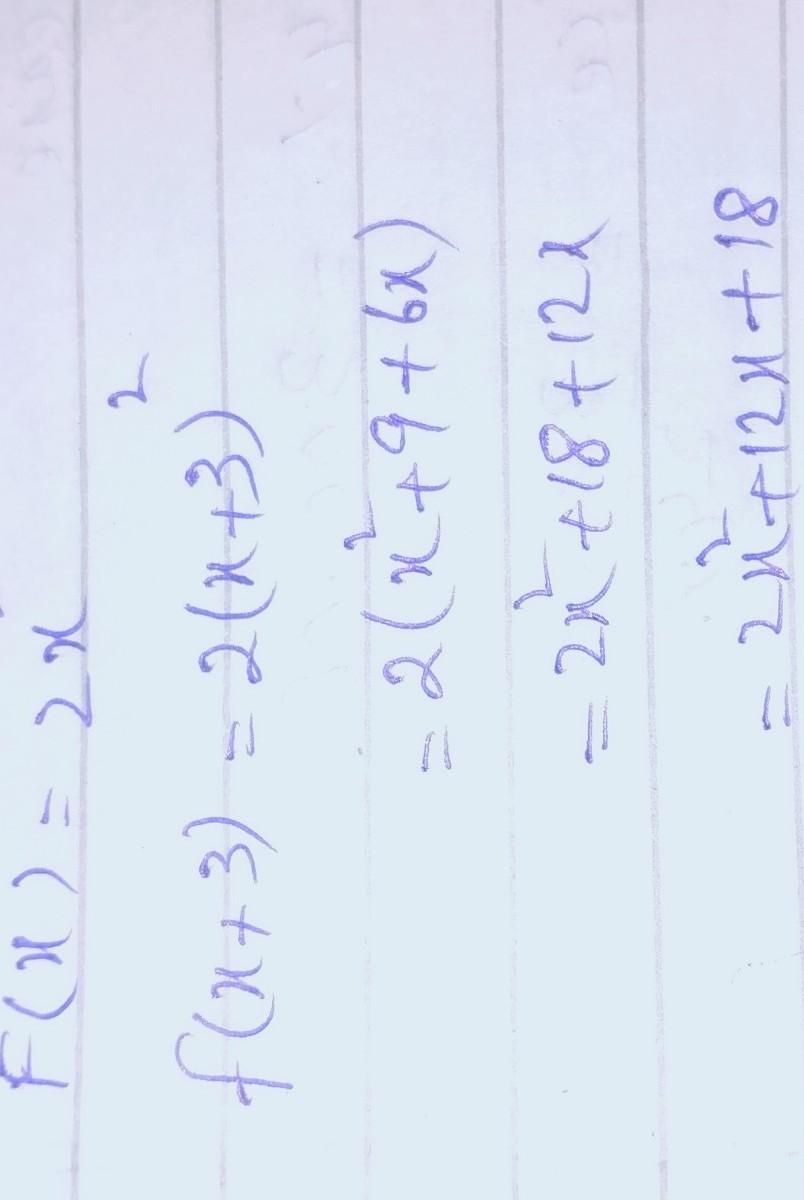 F(x) = 2x
f(x+3) = 2(x+3)²
= 2(x²+9+6x)
= 2x²+18+12x
= 2x²+12x+18